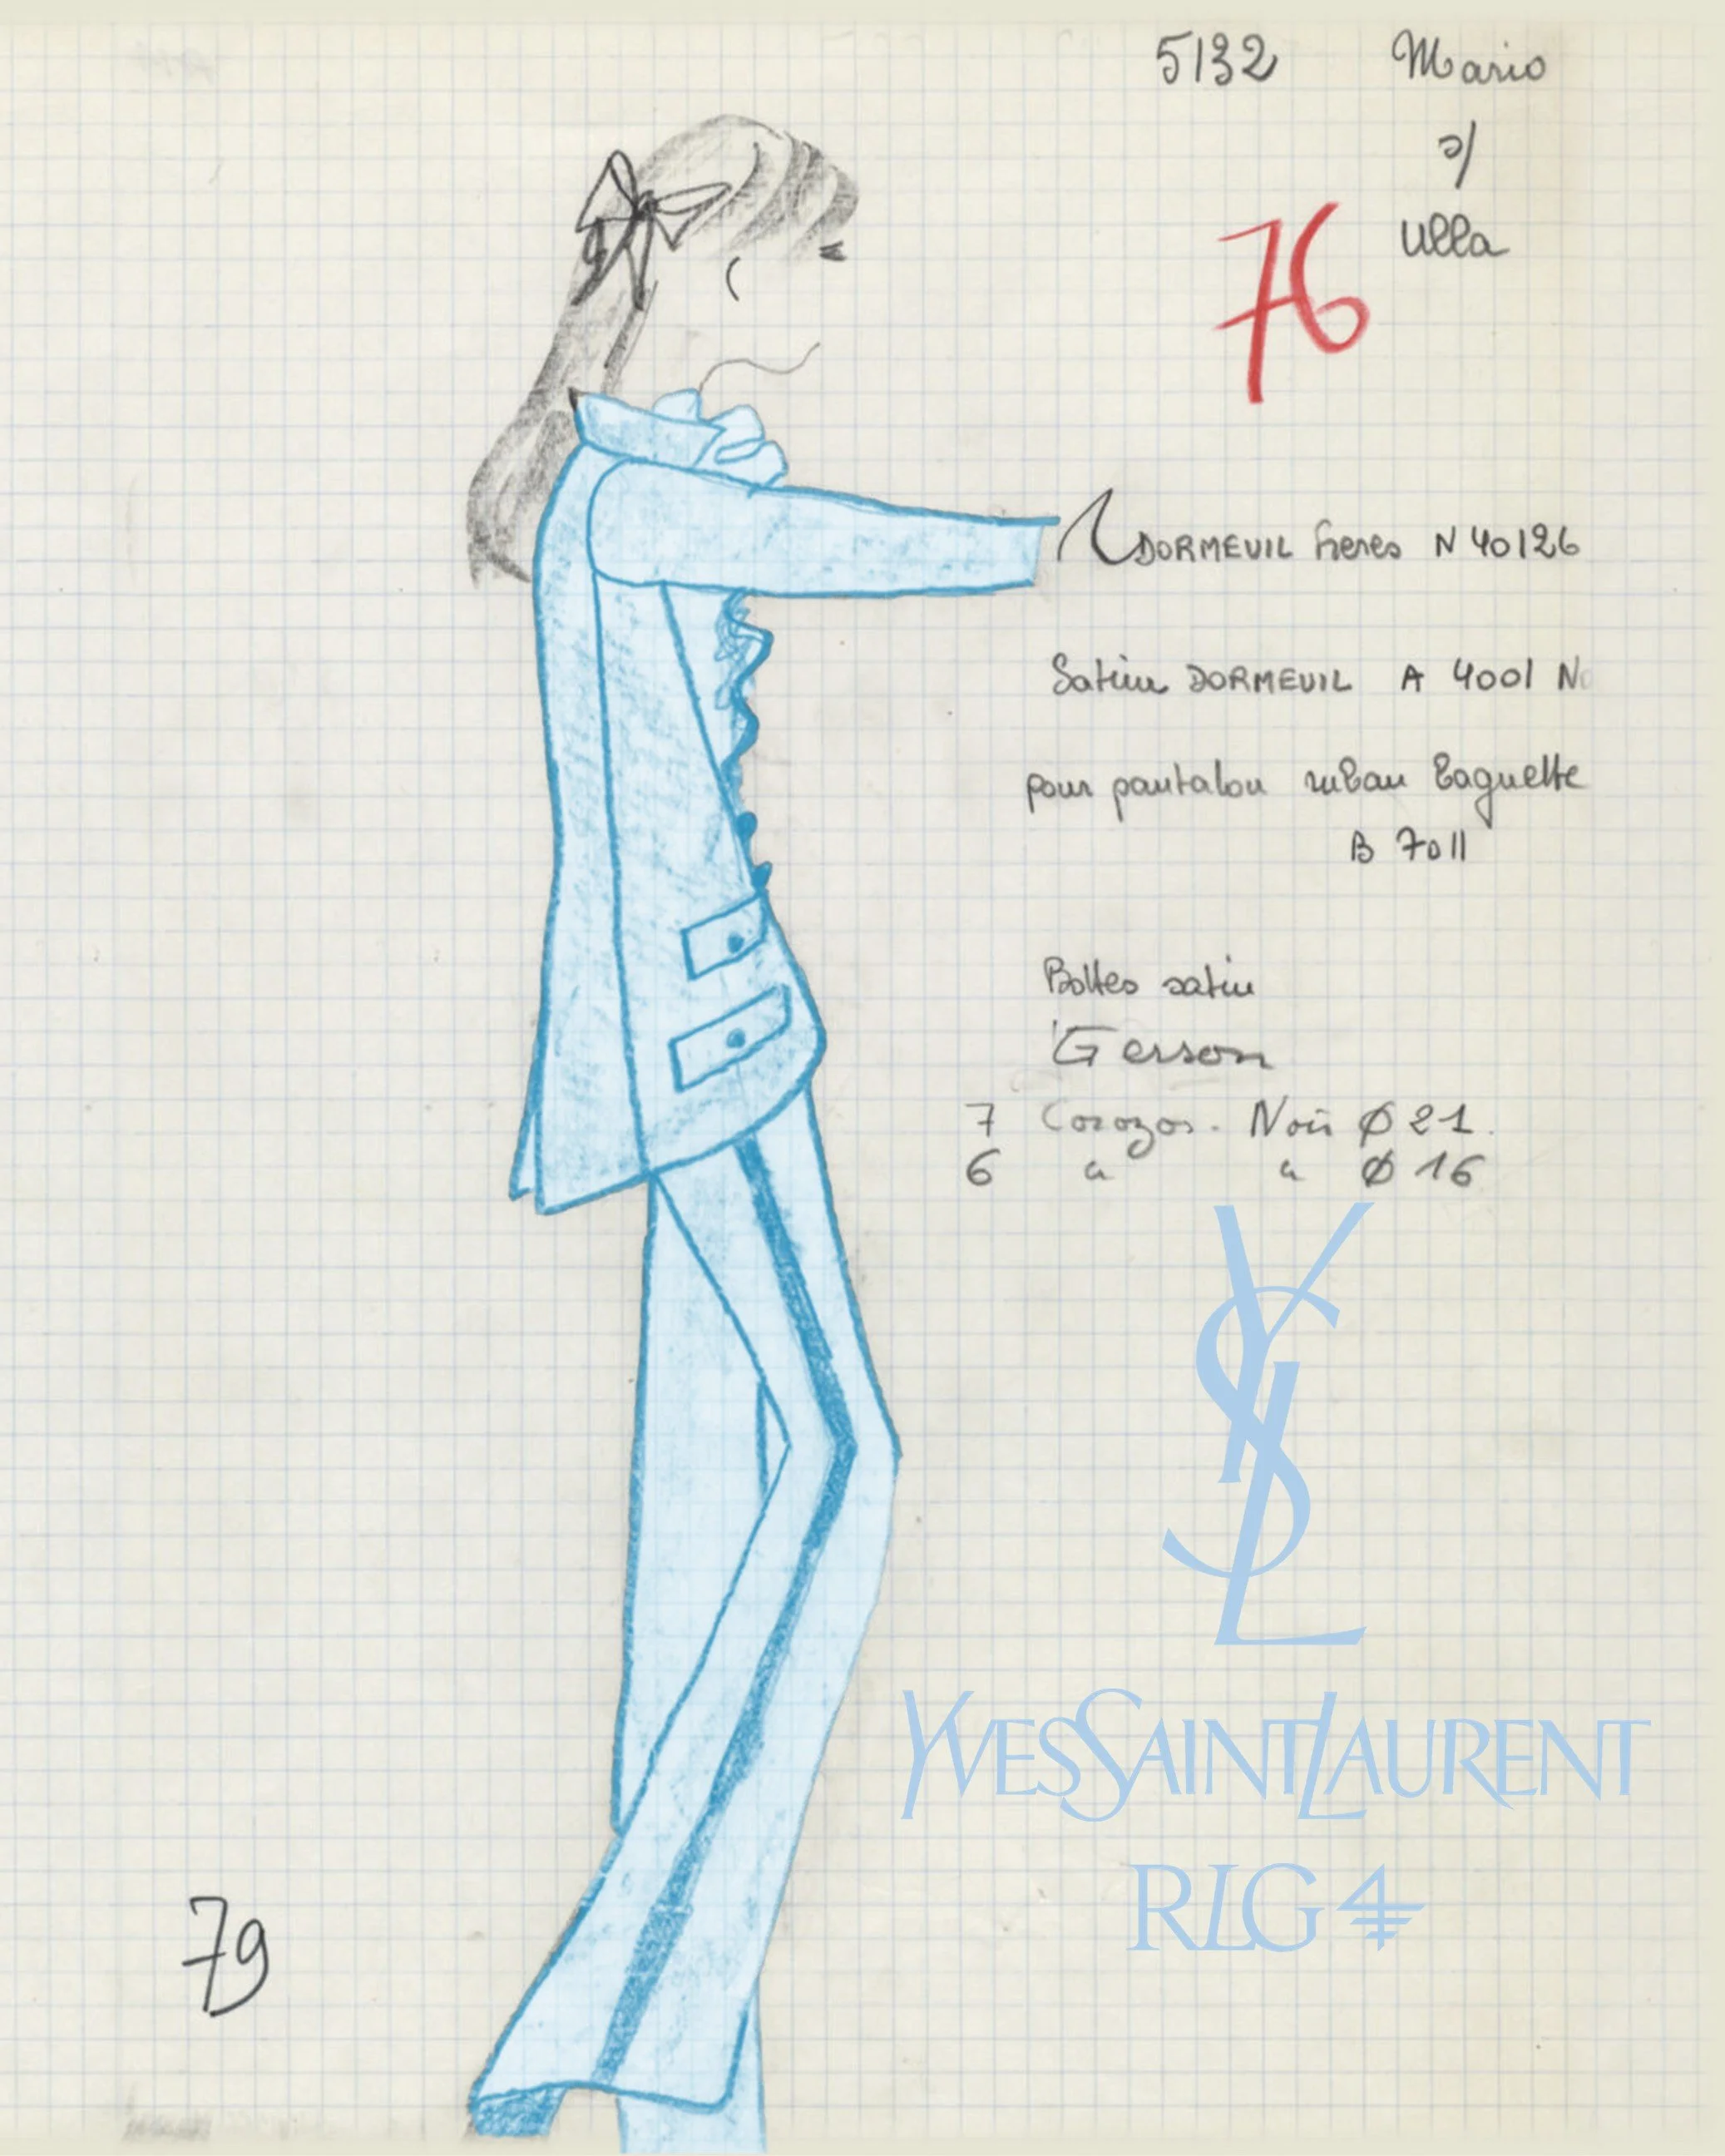 5132 Mario
s/
Ulla
76
DORMEUIL Freres N 40126
Satin DORMEUIL A 4001 No
pour pantalon ruban baguette
B 7011
Bottes satin
Gerson
7 Corozos. Noir Ø 21.
6 " " Ø 16
YSL
YVESSAINTLAURENT
RLG4
79